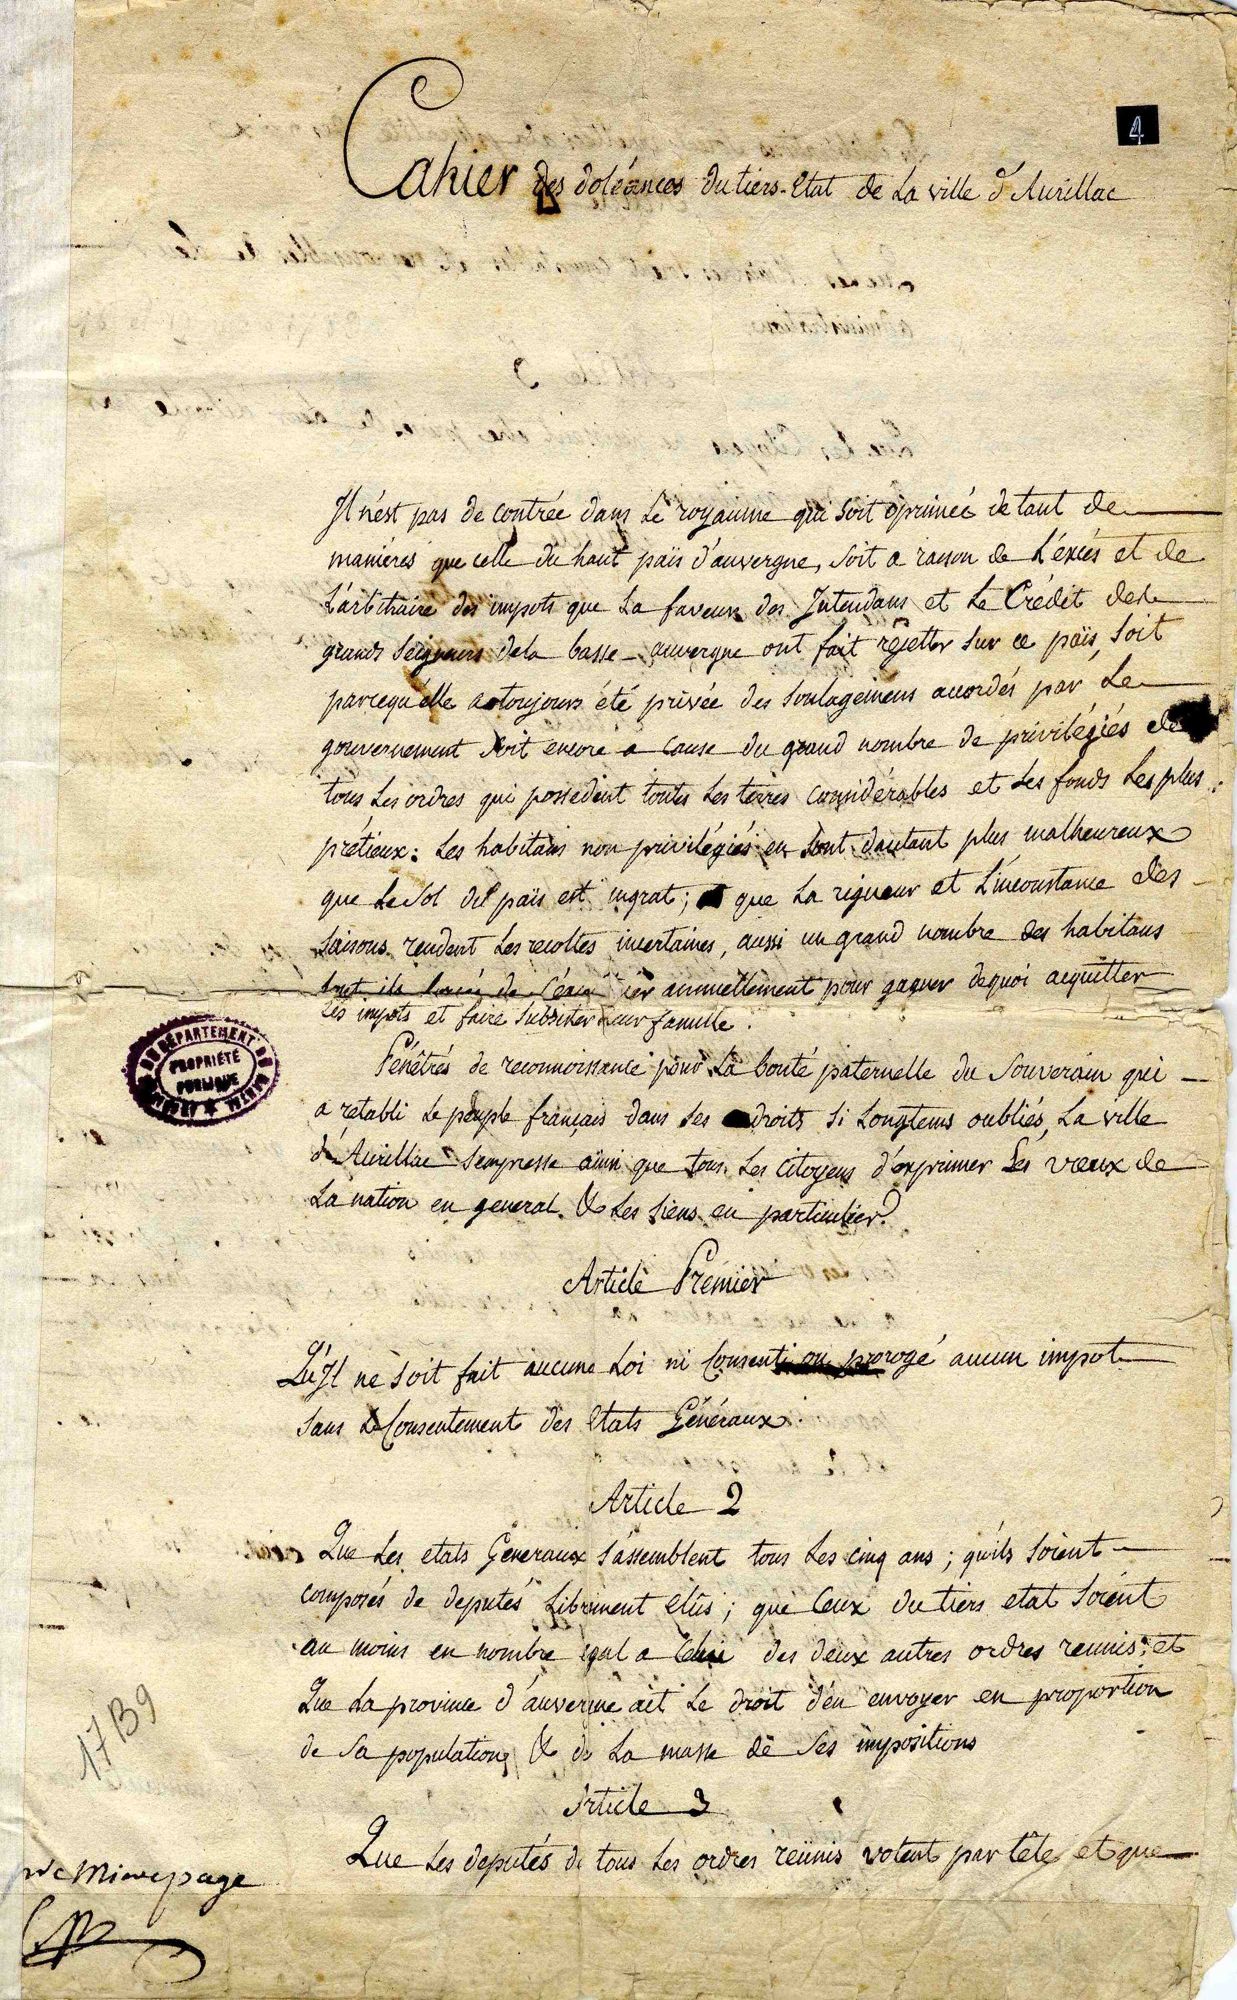 4
Cahier des doléances du tiers-Etat de La ville d'Aurillac
Il n'est pas de contrée dans Le royaume qui soit oprimée de tant de
manières que celle du haut païs d'auvergne, soit a raison de L'éxcés et de
L'arbitraire des impots que La faveur des Intendans et Le Crédit des
grands seigneurs dela basse-auvergne ont fait rejetter sur ce païs, soit
parcequ'elle a toujours été privée des soulagemens accordés par Le
gouvernement soit encore a cause du grand nombre de privilégiés de
tous Les ordres qui possedent toutes Les terres considérables et Les fonds Les plus
prétieux: Les habitans non privilégiés en sont dautant plus malheureux
que Le sol du païs est ingrat; que La rigueur et L'inconstance des
saisons rendent Les recoltes incertaines, aussi un grand nombre des habitans
sont ils de annuellement pour gagner dequoi acquitter
Les impots et faire subsister Leur famille.
Pénêtrés de reconnoissance pour La bonté paternelle du Souverain qui
a rétabli Le peuple français dans ses droits si Longtems oubliés, La ville
d'Aurillac s'empresse ainsi que tous Les Citoyens d'exprimer Les vœux de
La nation en general & Les siens en particulier.
Article Premier
Qu'Il ne soit fait aucune Loi ni Consenti ou prorogé aucun impot
sans Le Consentement des Etats Généraux.
Article 2
Que Les etats Generaux s'assemblent tous Les cinq ans; qu'ils soient
composés de deputés Librement Elûs; que Ceux du tiers etat soient
au moins en nombre egal a Celui des deux autres ordres reunis; et
Que La province d'auvergne ait Le droit d'en envoyer en proportion
de sa population, & de La masse de ses impositions
Article 3
Que Les deputés de tous Les ordres reünis votent par tête et que
DU DÉPARTEMENT DU
PROPRIÉTÉ
PUBLIQUE
17B9
page